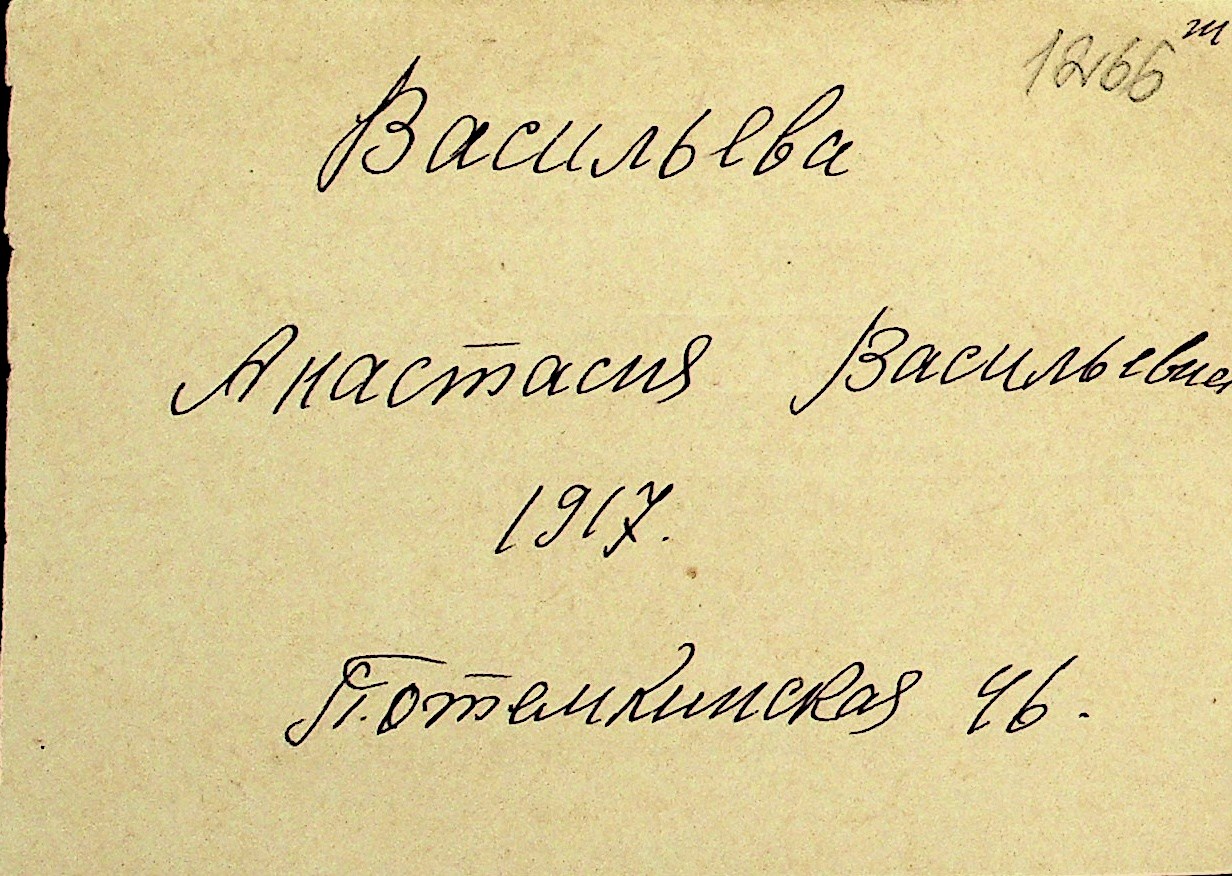 1266 т
Васильева
Анастасия Васильевна
1917.
Потемкинская 46.